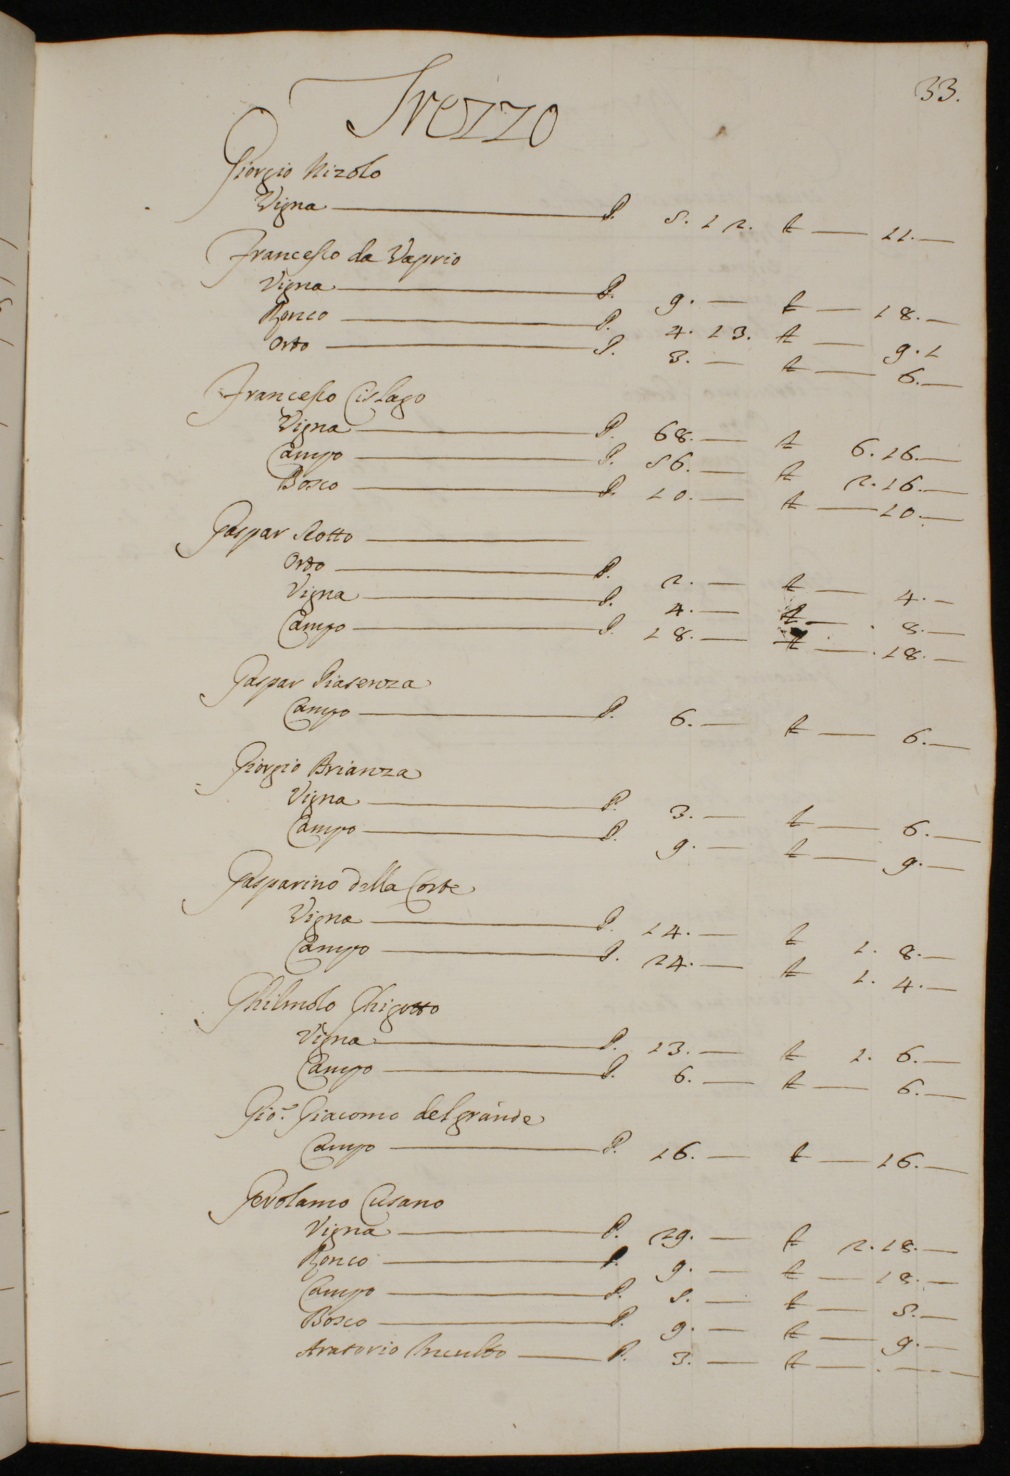 33.
Trezzo
Giorgio Nizolo
Vigna — P. 5. 12. £ — 11. —
Francesco da Vaprio
Vigna — P. 9. — £ — 18. —
Ronco — P. 4. 13. £ — 9. 1
Orto — P. 3. — £ — 6. —
Francesco Cislago
Vigna — P. 68. — £ 6. 16. —
Campo — P. 56. — £ 2. 16. —
Bosco — P. 10. — £ — 10. —
Gaspar Rotto —
Orto — P. 2. — £ — 4. —
Vigna — P. 4. — £ — 8. —
Campo — P. 18. — £ — 18. —
Gaspar Piasenza
Campo — P. 6. — £ — 6. —
Giorgio Brianza
Vigna — P. 3. — £ — 6. —
Campo — P. 9. — £ — 9. —
Gasparino della Corte
Vigna — P. 14. — £ 1. 8. —
Campo — P. 24. — £ 1. 4. —
Ghilmolo Ghigotto
Vigna — P. 13. — £ 1. 6. —
Campo — P. 6. — £ — 6. —
Gio. Giacomo del grande
Campo — P. 16. — £ — 16. —
Gerolamo Cusano
Vigna — P. 29. — £ 2. 18. —
Ronco — P. 9. — £ — 18. —
Campo — P. 5. — £ — 5. —
Bosco — P. 9. — £ — 9. —
Aratorio Inculto — P. 3. — £ — . —